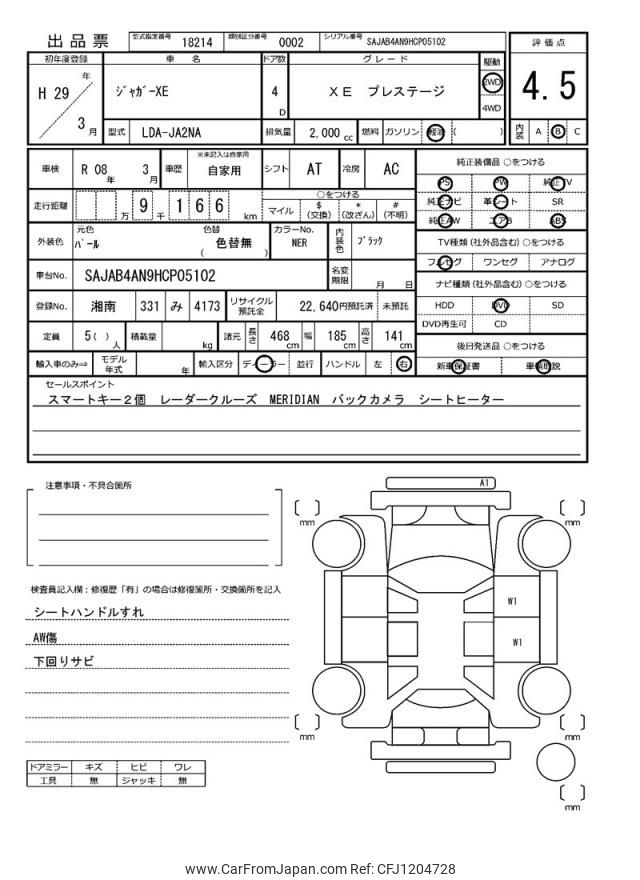 出品票 型式指定番号 18214 類別区分番号 0002 シリアル番号 SAJAB4AN9HCP05102 評価点
初年度登録 車 名 ドア数 グレード 駆動
H 29 年 3 月 ジャガーXE 4 D XE プレステージ 2WD 4WD 4.5
型式 LDA-JA2NA 排気量 2,000 cc 燃料 ガソリン 軽油 ( ) 内装 A B C
車検 R 08 年 3 月 車歴 ※未記入は自家用 自家用 シフト AT 冷房 AC 純正装備品 ○をつける
PS PW 純正TV
純正ナビ 革シート SR
純正AW エアB ABS
走行距離 万 9 千 1 6 6 km ○をつける
マイル $ (交換) * (改ざん) # (不明)
外装色 元色 パール 色替 ( 色替無 ) カラーNo. NER 内装色 ブラック
TV種類 (社外品含む) ○をつける
フルセグ ワンセグ アナログ
車台No. SAJAB4AN9HCP05102 名変期限 月 日
ナビ種類 (社外品含む) ○をつける
HDD DVD SD
DVD再生可 CD
登録No. 湘南 331 み 4173 リサイクル預託金 22,640円預託済 未預託
定員 5( ) 人 積載量 kg 諸元 長さ 468 cm 幅 185 cm 高さ 141 cm
後日発送品 ○をつける
新車保証書 車輌取説
輸入車のみ⇒ モデル年式 年 輸入区分 ディーラー 並行 ハンドル 左 右
セールスポイント
スマートキー2個 レーダークルーズ MERIDIAN バックカメラ シートヒーター
注意事項・不具合箇所
検査員記入欄：修復歴「有」の場合は修復箇所・交換箇所を記入
シートハンドルすれ
AW傷
下回りサビ
ドアミラー キズ ヒビ ワレ
工具 無 ジャッキ 無
A1
[ ] mm
[ ] mm
W1
W1
[ ] mm
[ ] mm
[ ] mm
www.CarFromJapan.com Ref: CFJ1204728